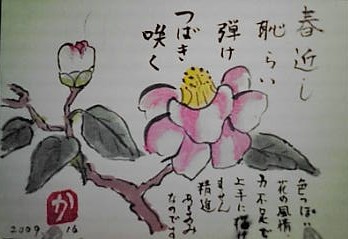 春近し
恥らい
弾け
つばき
咲く
色っぽい
花の風情
力不足で
上手に描け
ません
あるのみ
精進
なのです
か
2009 16